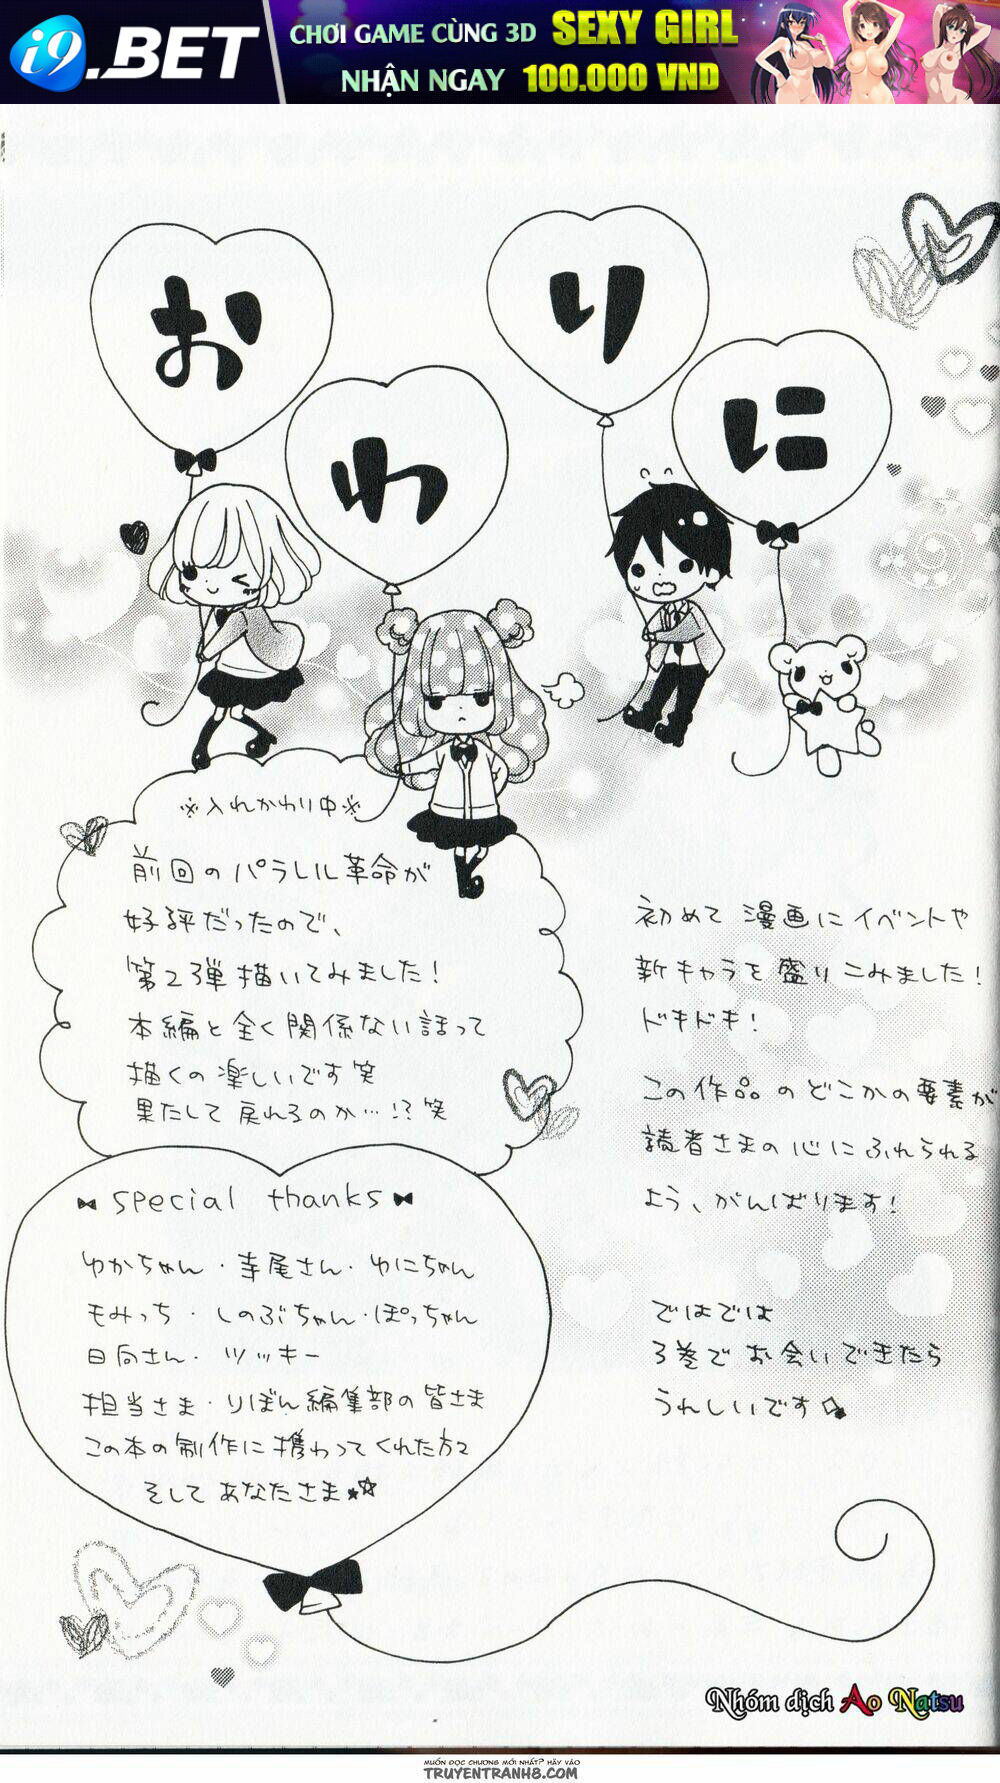 i9.BET
CHƠI GAME CÙNG 3D SEXY GIRL
NHẬN NGAY 100.000 VND
おわりに
※入れかわり中※
前回のパラレル革命が
好評だったので、
第2弾描いてみました!
本編と全く関係ない話って
描くの楽しいです笑
果たして戻れるのか…!?笑
初めて漫画にイベントや
新キャラを盛りこみました!
ドキドキ!
この作品のどこかの要素が
読者さまの心にふれられる
よう、がんばります!
special thanks
ゆかちゃん・寺尾さん・ゆにちゃん
もみっち・しのぶちゃん・ぽっちゃん
日向さん・ツッキー
担当さま・りぼん編集部の皆さま
この本の制作に携わってくれた方々
そしてあなたさま
ではでは
3巻でお会いできたら
うれしいです
Nhóm dịch Ao Natsu
MUỐN ĐỌC CHƯƠNG MỚI NHẤT? HÃY VÀO
TRUYENTRANH8.COM